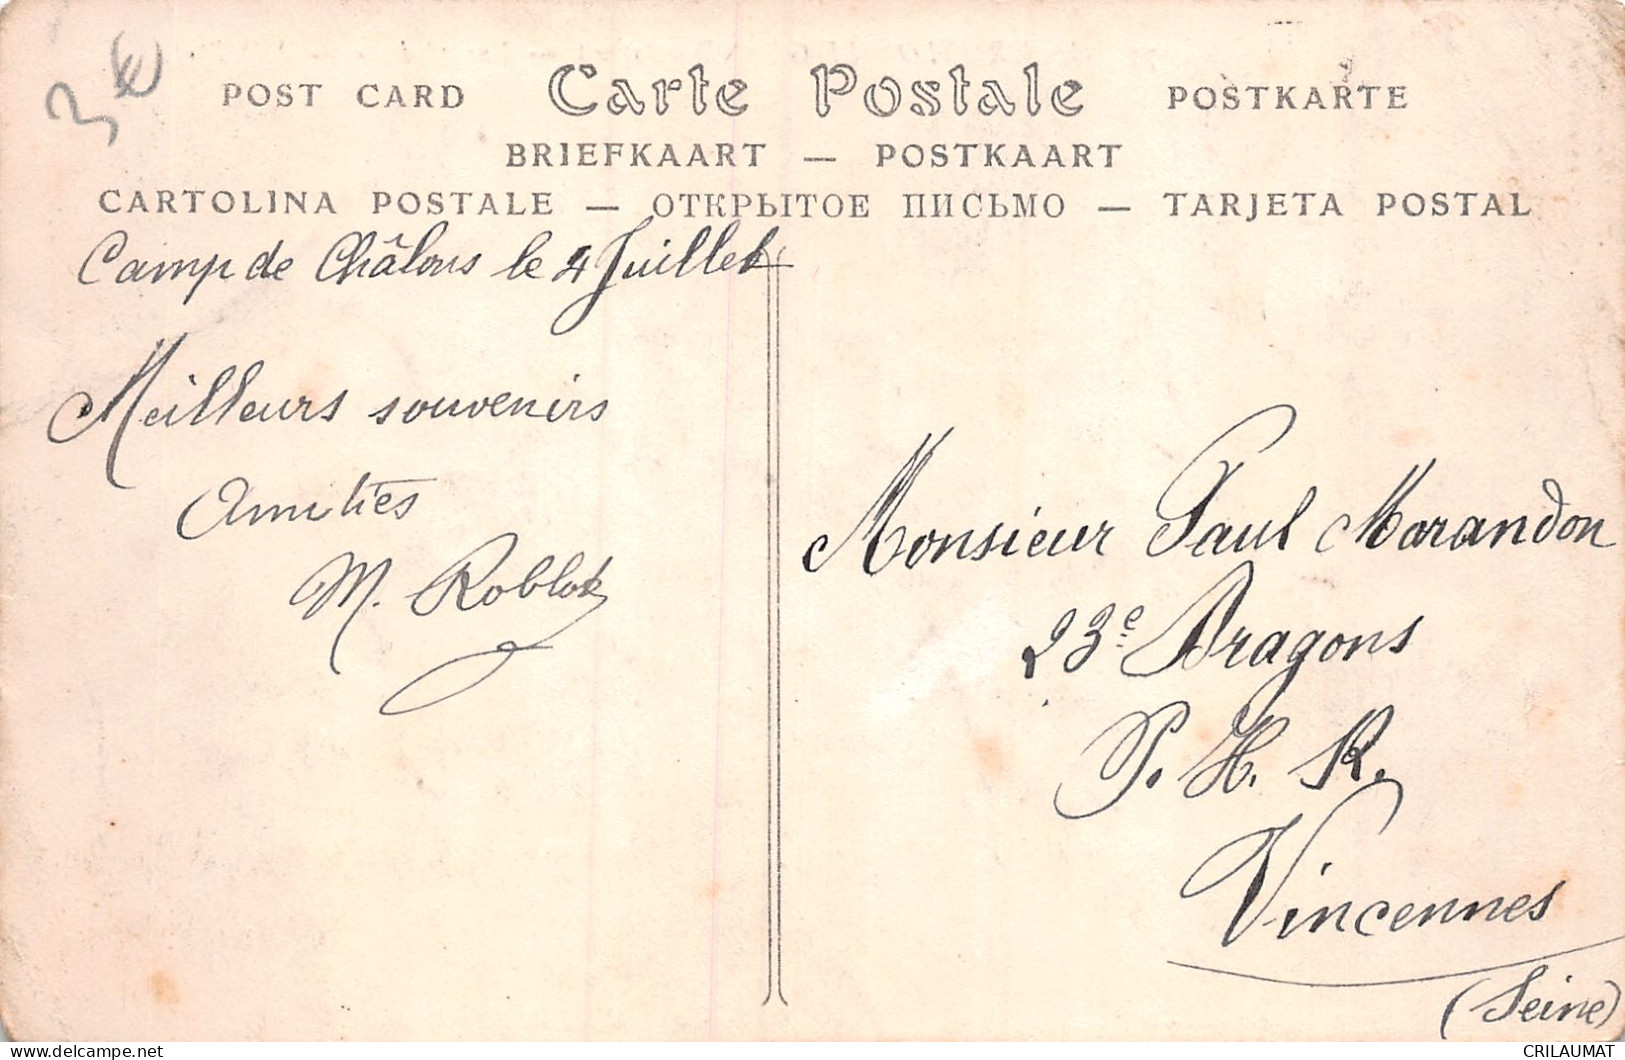 3€
POST CARD Carte Postale POSTKARTE
BRIEFKAART — POSTKAART
CARTOLINA POSTALE — ОТКРЫТОЕ ПИСЬМО — TARJETA POSTAL
Camp de Châlons le 4 Juillet
Meilleurs souvenirs
Amitiés
M. Roblot
Monsieur Paul Marandon
23e Dragons
P. H. R.
Vincennes
(Seine)
CRILAUMAT